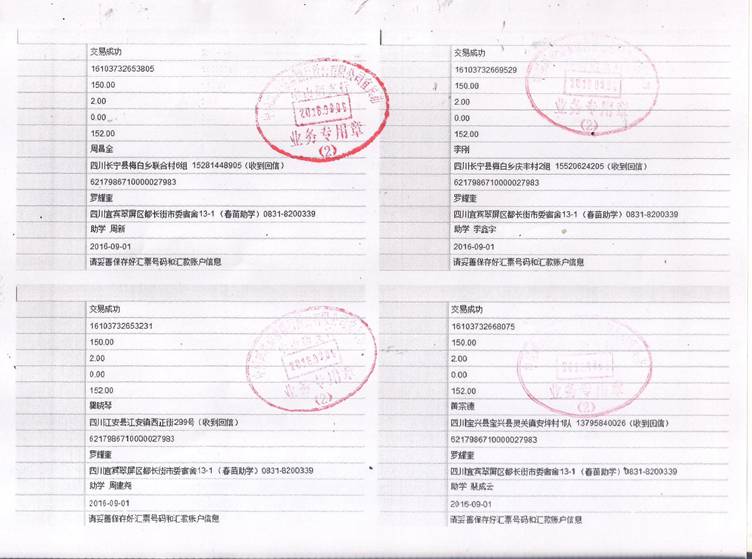 交易成功
16103732653805
150.00
2.00
0.00
152.00
周昌全
四川长宁县梅白乡联合村6组 15281448905（收到回信）
6217986710000027983
罗耀奎
四川宜宾翠屏区都长街市委宿舍13-1（春苗助学）0831-8200339
助学 周新
2016-09-01
请妥善保存好汇票号码和汇款账户信息
业务专用章
(2)
交易成功
16103732669529
150.00
2.00
0.00
152.00
李刚
四川长宁县梅白乡庆丰村2组 15520624205（收到回信）
6217986710000027983
罗耀奎
四川宜宾翠屏区都长街市委宿舍13-1（春苗助学）0831-8200339
助学 李鑫宇
2016-09-01
请妥善保存好汇票号码和汇款账户信息
业务专用章
(2)
交易成功
16103732653231
150.00
2.00
0.00
152.00
晓琴
四川江安县江安镇西正街299号（收到回信）
6217986710000027983
罗耀奎
四川宜宾翠屏区都长街市委宿舍13-1（春苗助学）0831-8200339
助学 周建尧
2016-09-01
请妥善保存好汇票号码和汇款账户信息
业务专用章
(2)
交易成功
16103732668075
150.00
2.00
0.00
152.00
黄宗德
四川宝兴县宝兴县灵关镇安坪村1队 13795840026（收到回信）
6217986710000027983
罗耀奎
四川宜宾翠屏区都长街市委宿舍13-1（春苗助学）0831-8200339
助学 成云
2016-09-01
请妥善保存好汇票号码和汇款账户信息
业务专用章
(2)